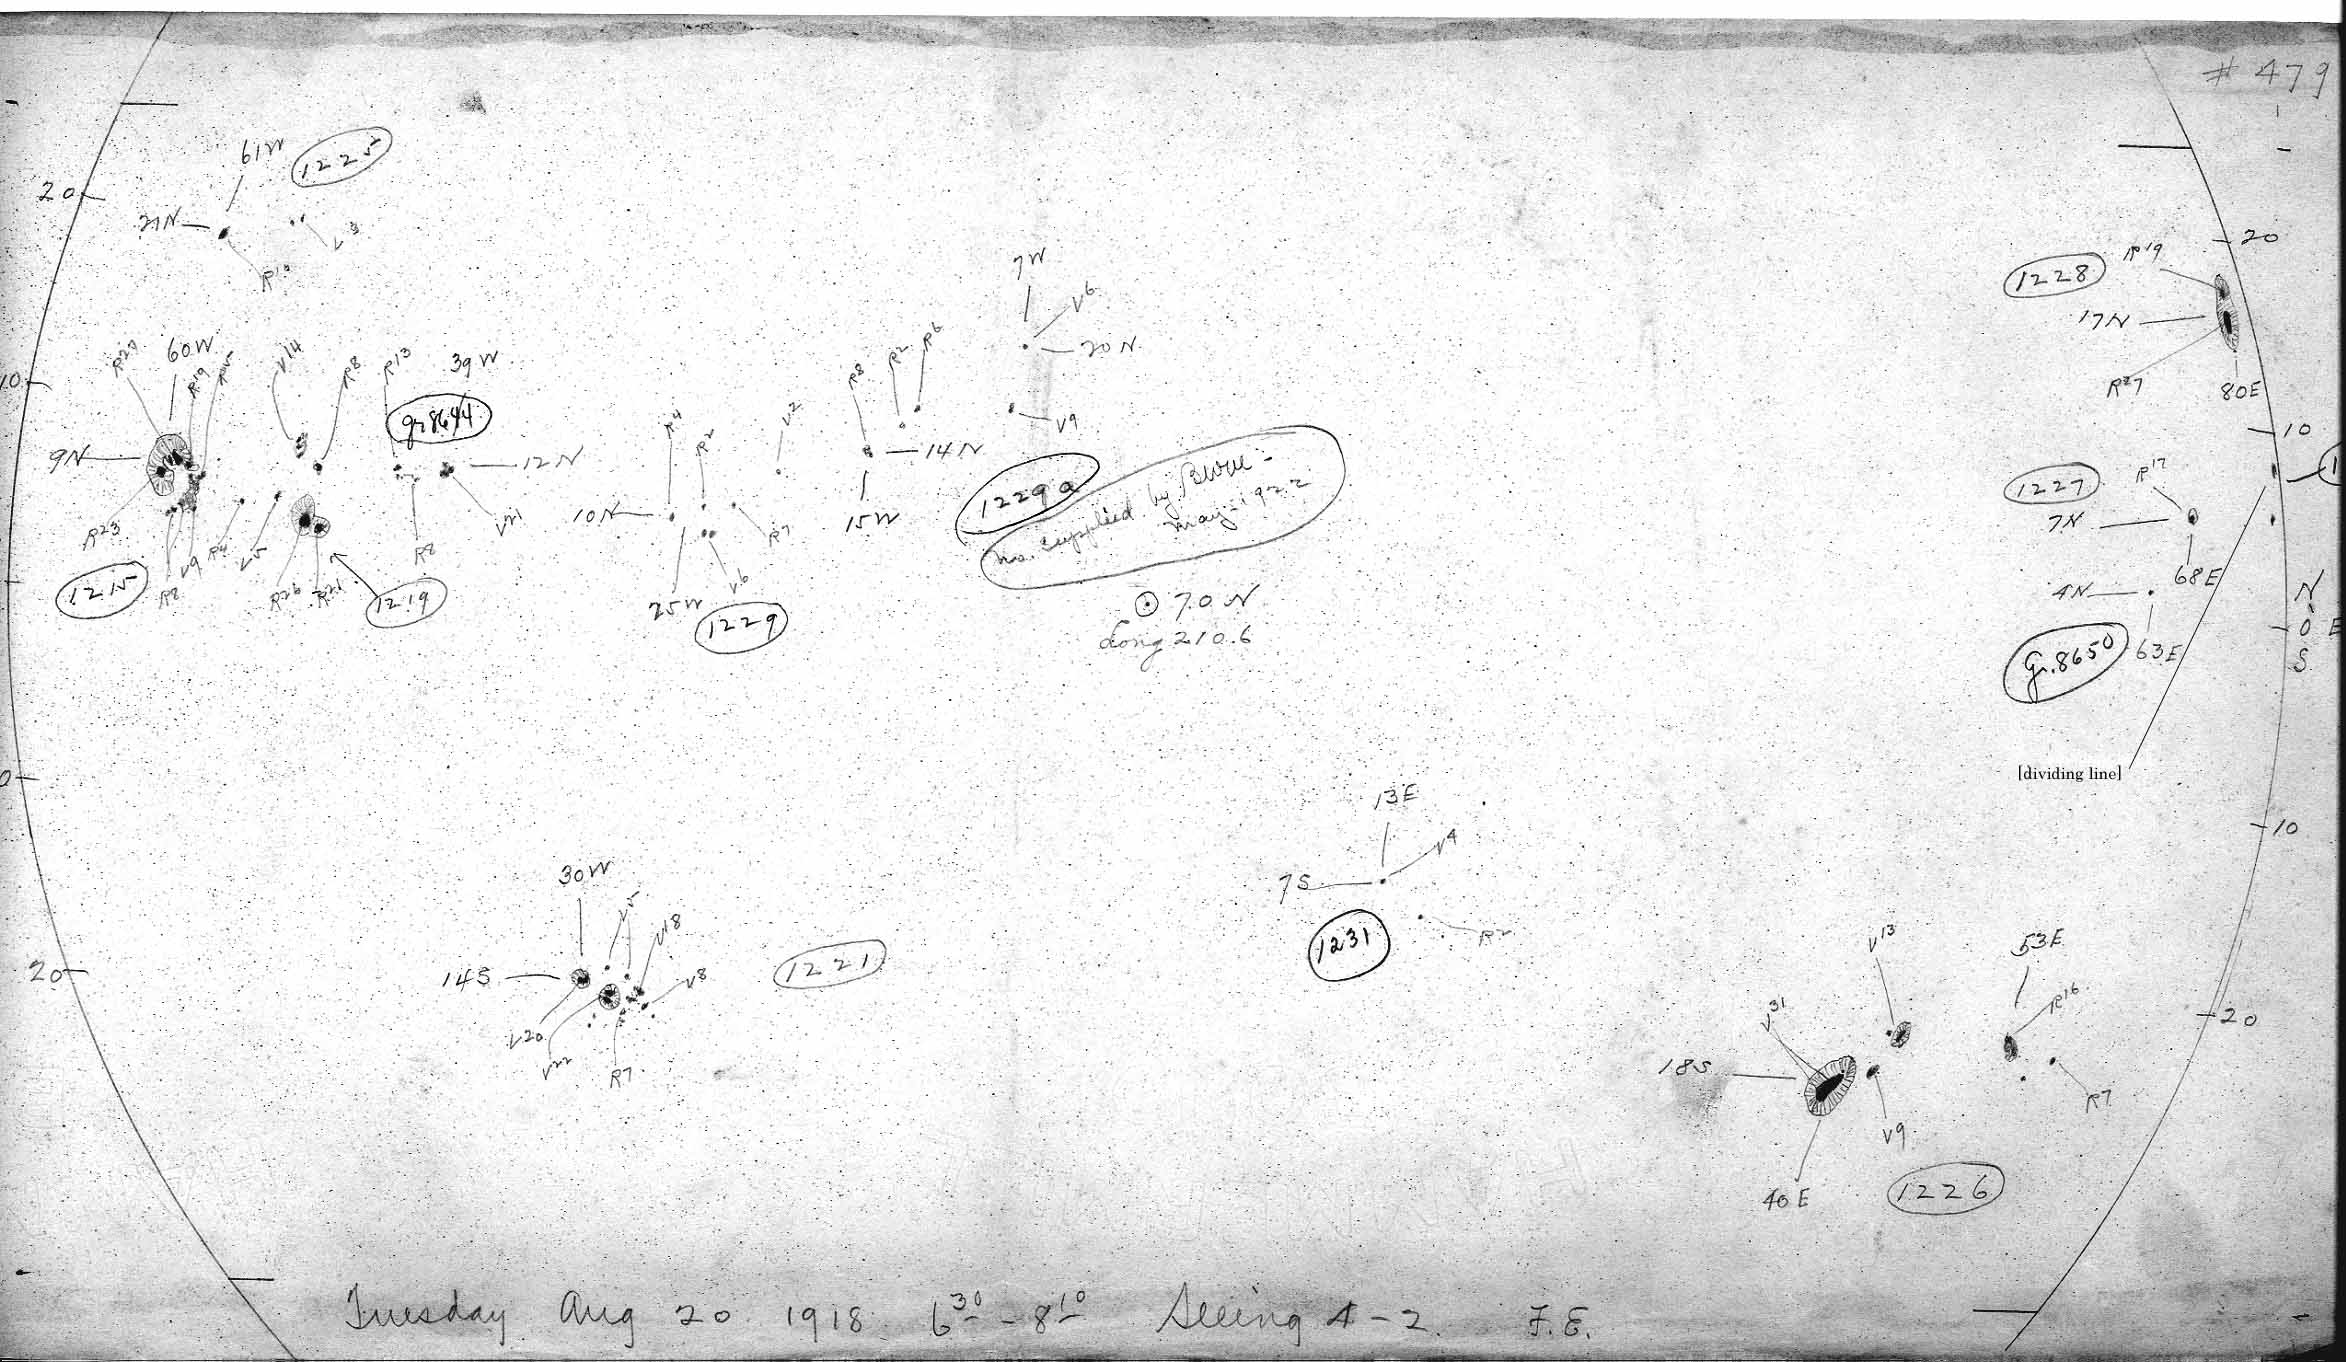 # 479
61W
1225
20
21N
V3
R10
7W
V6
20N
V9
20
R19
1228
17N
R27
80E
10
60W
R19
V14
R8
R13
39W
gr 8644
9N
12N
V21
R23
R4
V5
R8
V9
R8
1215
R26
R21
1219
R4
R2
V2
10N
R7
25W
V6
1229
R8
R2
R6
14N
15W
1229a
No. supplied by
May-1922
⊙ 7.0 N
Long 210.6
10
1227
R17
7N
68E
4N
Gr. 8650
63E
N
0 E
S
[dividing line]
0
10
13E
V4
7S
1231
R2
30W
V5
V18
14S
1221
V8
V20
V22
R7
20
V13
53E
V31
R16
18S
R7
V9
40E
1226
20
Tuesday Aug 20 1918 6 30 - 8 10 Seeing 4-2. F.E.